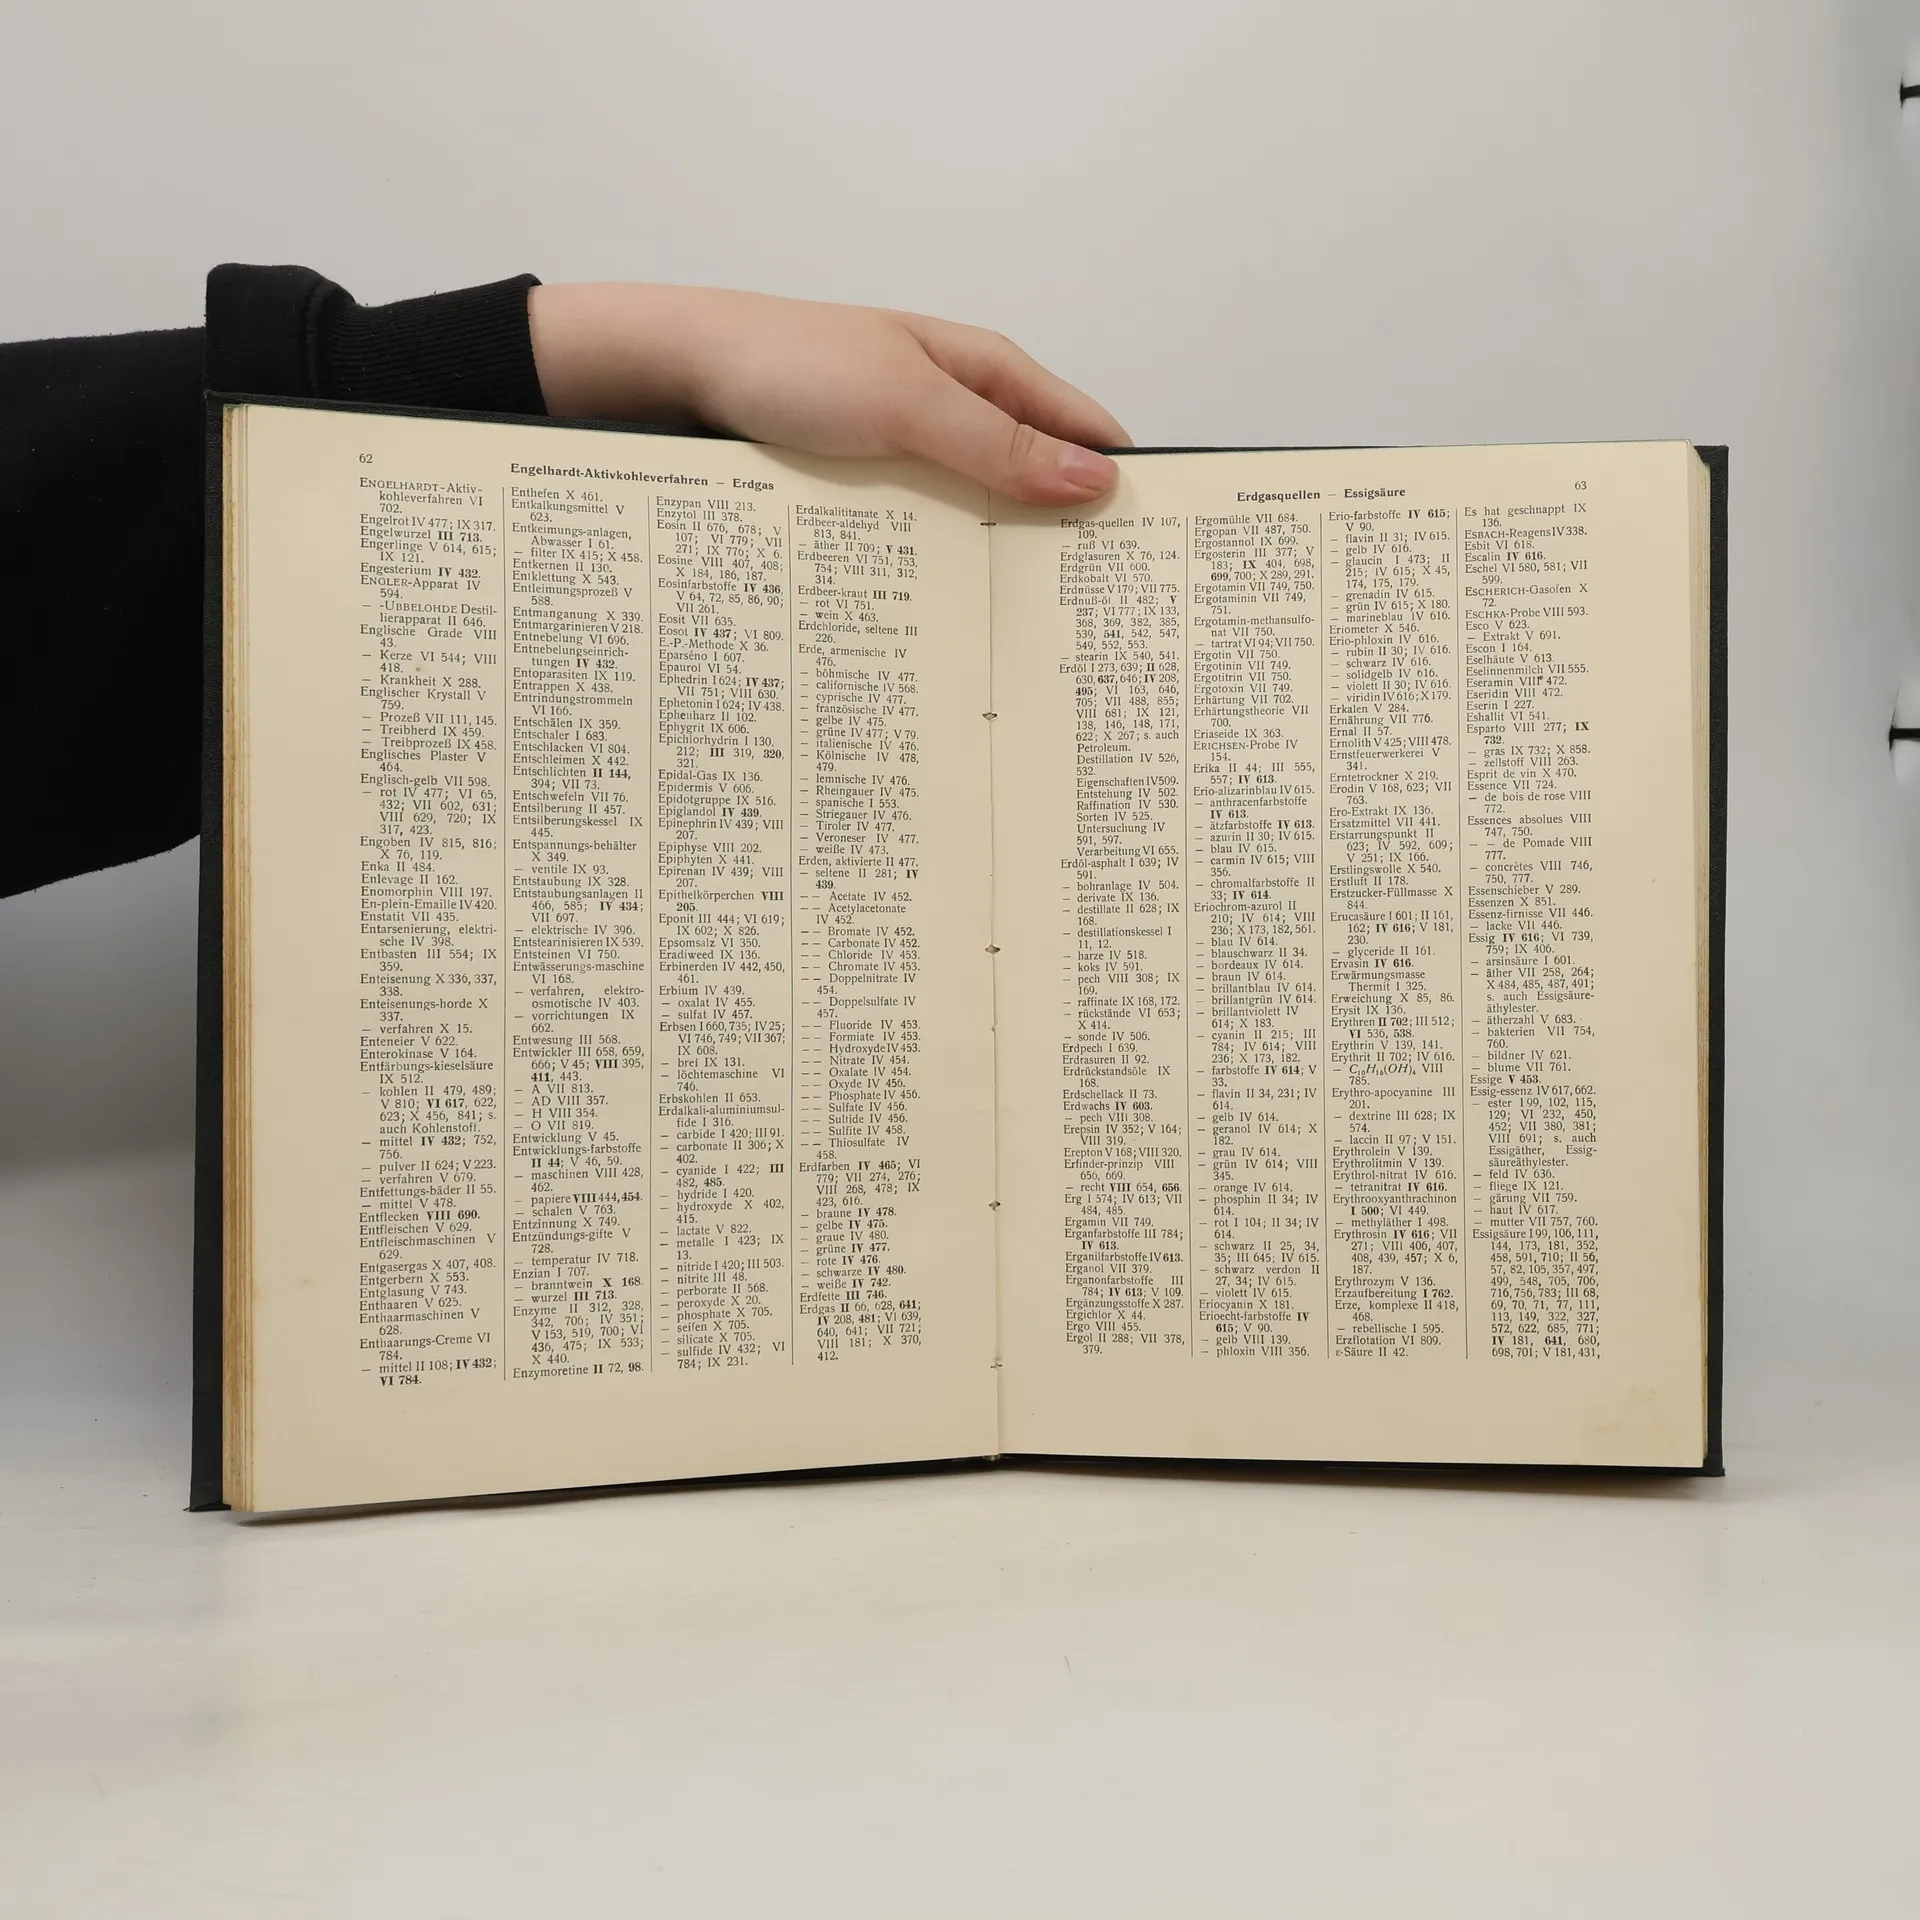 62
Engelhardt-Aktivkohleverfahren — Erdgas
ENGELHARDT-Aktiv-
kohleverfahren VI
702.
Engelrot IV 477; IX 317.
Engelwurzel III 713.
Engerlinge V 614, 615;
IX 121.
Engesterium IV 432.
ENGLER-Apparat IV
594.
— -UBBELOHDE Destil-
lierapparat II 646.
Englische Grade VIII
43.
— Kerze VI 544; VIII
418.
— Krankheit X 288.
Englischer Krystall V
759.
— Prozeß VII 111, 145.
— Treibherd IX 459.
— Treibprozeß IX 458.
Englisches Plaster V
464.
Englisch-gelb VII 598.
— rot IV 477; VI 65,
432; VII 602, 631;
VIII 629, 720; IX
317, 423.
Engoben IV 815, 816;
X 76, 119.
Enka II 484.
Enlevage II 162.
Enomorphin VIII 197.
En-plein-Emaille IV 420.
Enstatit VII 435.
Entarsenierung, elektri-
sche IV 398.
Entbasten III 554; IX
359.
Enteisenung X 336, 337,
338.
Enteisenungs-horde X
337.
— verfahren X 15.
Enteneier V 622.
Enterokinase V 164.
Entfärbungs-kieselsäure
IX 512.
— kohlen II 479, 489;
V 810; VI 617, 622,
623; X 456, 841; s.
auch Kohlenstoff.
— mittel IV 432; 752,
756.
— pulver II 624; V 223.
— verfahren V 679.
Entfettungs-bäder II 55.
— mittel V 478.
Entflecken VIII 690.
Entfleischen V 629.
Entfleischmaschinen V
629.
Entgasergas X 407, 408.
Entgerbern X 553.
Entglasung V 743.
Enthaaren V 625.
Enthaarmaschinen V
628.
Enthaarungs-Creme VI
784.
— mittel II 108; IV 432;
VI 784.
Enthefen X 461.
Entkalkungsmittel V
623.
Entkeimungs-anlagen,
Abwasser I 61.
— filter IX 415; X 458.
Entkernen II 130.
Entklettung X 543.
Entleimungsprozeß V
588.
Entmanganung X 339.
Entmargarinieren V 218.
Entnebelung VI 696.
Entnebelungseinrich-
tungen IV 432.
Entoparasiten IX 119.
Entrappen X 438.
Entrindungstrommeln
VI 166.
Entschälen IX 359.
Entschaler I 683.
Entschlacken VI 804.
Entschleimen X 442.
Entschlichten II 144,
394; VII 73.
Entschwefeln VII 76.
Entsilberung II 457.
Entsilberungskessel IX
445.
Entspannungs-behälter
X 349.
— ventile IX 93.
Entstaubung IX 328.
Entstaubungsanlagen II
466, 585; IV 434;
VII 697.
— elektrische IV 396.
Entstearinisieren IX 539.
Entsteinen VI 750.
Entwässerungs-maschine
VI 168.
— verfahren, elektro-
osmotische IV 403.
— vorrichtungen IX
662.
Entwesung III 568.
Entwickler III 658, 659,
666; V 45; VIII 395,
411, 443.
— A VII 813.
— AD VIII 357.
— H VIII 354.
— O VII 819.
Entwicklung V 45.
Entwicklungs-farbstoffe
II 44; V 46, 59.
— maschinen VIII 428,
462.
— papiere VIII 444, 454.
— schalen V 763.
Entzinnung X 749.
Entzündungs-gifte V
728.
— temperatur IV 718.
Enzian I 707.
— branntwein X 168.
— wurzel III 713.
Enzyme II 312, 328,
342, 706; IV 351;
V 153, 519, 700; VI
436, 475; IX 533;
X 440.
Enzymoretine II 72, 98.
Enzypan VIII 213.
Enzytol III 378.
Eosin II 676, 678; V
107; VI 779; VII
271; IX 776; X 6.
Eosine VIII 407, 408;
X 184, 186, 187.
Eosinfarbstoffe IV 436,
V 64, 72, 85, 86, 90;
VII 261.
Eosit VII 635.
Eosot IV 437; VI 809.
E.-P.-Methode X 36.
Eparséno I 607.
Epaurol VI 54.
Ephedrin I 624; IV 437;
VII 751; VIII 630.
Ephetonin I 624; IV 438.
Epheuharz II 102.
Ephygrit IX 606.
Epichlorhydrin I 130,
212; III 319, 320,
321.
Epidal-Gas IX 136.
Epidermis V 606.
Epidotgruppe IX 516.
Epiglandol IV 439.
Epinephrin IV 439; VIII
207.
Epiphyse VIII 202.
Epiphyten X 441.
Epirenan IV 439; VIII
207.
Epithelkörperchen VIII
205.
Eponit III 444; VI 619;
IX 602; X 826.
Epsomsalz VI 350.
Eradiweed IX 136.
Erbinerden IV 442, 450,
461.
Erbium IV 439.
— oxalat IV 455.
— sulfat IV 457.
Erbsen I 660, 735; IV 25;
VI 746, 749; VII 367;
IX 608.
— brei IX 131.
— löchtemaschine VI
746.
Erbskohlen II 653.
Erdalkali-aluminiumsul-
fide I 316.
— carbide I 420; III 91.
— carbonate II 306; X
402.
— cyanide I 422; III
482, 485.
— hydride I 420.
— hydroxyde X 402,
415.
— lactate V 822.
— metalle I 423; IX
13.
— nitride I 420; III 503.
— nitrite III 48.
— perborate II 568.
— peroxyde X 20.
— phosphate X 705.
— seifen X 705.
— silicate X 705.
— sulfide IV 432; VI
784; IX 231.
Erdalkalititanate X 14.
Erdbeer-aldehyd VIII
813, 841.
— äther II 709; V 431.
Erdbeeren VI 751, 753,
754; VIII 311, 312,
314.
Erdbeer-kraut III 719.
— rot VI 751.
— wein X 463.
Erdchloride, seltene III
226.
Erde, armenische IV
476.
— böhmische IV 477.
— californische IV 568.
— cyprische IV 477.
— französische IV 477.
— gelbe IV 475.
— grüne IV 477; V 79.
— italienische IV 476.
— Kölnische IV 478,
479.
— lemnische IV 476.
— Rheingauer IV 475.
— spanische I 553.
— Striegauer IV 476.
— Tiroler IV 477.
— Veroneser IV 477.
— weiße IV 473.
Erden, aktivierte II 477.
— seltene II 281; IV
439.
— — Acetate IV 452.
— — Acetylacetonate
IV 452.
— — Bromate IV 452.
— — Carbonate IV 452.
— — Chloride IV 453.
— — Chromate IV 453.
— — Doppelnitrate IV
454.
— — Doppelsulfate IV
457.
— — Fluoride IV 453.
— — Formiate IV 453.
— — Hydroxyde IV 453.
— — Nitrate IV 454.
— — Oxalate IV 454.
— — Oxyde IV 456.
— — Phosphate IV 456.
— — Sulfate IV 456.
— — Sulfide IV 456.
— — Sulfite IV 458.
— — Thiosulfate IV
458.
Erdfarben IV 465; VI
779; VII 274, 276;
VIII 268, 478; IX
423, 616.
— braune IV 478.
— gelbe IV 475.
— graue IV 480.
— grüne IV 477.
— rote IV 476.
— schwarze IV 480.
— weiße IV 742.
Erdfette III 746.
Erdgas II 66, 628, 641;
IV 208, 481; VI 639,
640, 641; VII 721;
VIII 181; X 370,
412.
63
Erdgasquellen — Essigsäure
Erdgas-quellen IV 107,
109.
— ruß VI 639.
Erdglasuren X 76, 124.
Erdgrün VII 600.
Erdkobalt VI 570.
Erdnüsse V 179; VII 775.
Erdnuß-öl II 482; V
237; VI 777; IX 133,
368, 369, 382, 385,
539, 541, 542, 547,
549, 552, 553.
— stearin IX 540, 541.
Erdöl I 273, 639; II 628,
630, 637, 646; IV 208,
495; VI 163, 646,
705; VII 488, 855;
VIII 681; IX 121,
138, 146, 148, 171,
622; X 267; s. auch
Petroleum.
Destillation IV 526,
532.
Eigenschaften IV 509.
Entstehung IV 502.
Raffination IV 530.
Sorten IV 525.
Untersuchung IV
591, 597.
Verarbeitung VI 655.
Erdöl-asphalt I 639; IV
591.
— bohranlage IV 504.
— derivate IX 136.
— destillate II 628; IX
168.
— destillationskessel I
11, 12.
— harze IV 518.
— koks IV 591.
— pech VIII 308; IX
169.
— raffinate IX 168, 172.
— rückstände VI 653;
X 414.
— sonde IV 506.
Erdpech I 639.
Erdrasuren II 92.
Erdrückstandsöle IX
168.
Erdschellack II 73.
Erdwachs IV 603.
— pech VIII 308.
Erepsin IV 352; V 164;
VIII 319.
Erepton V 168; VIII 320.
Erfinder-prinzip VIII
656, 669.
— recht VIII 654, 656.
Erg I 574; IV 613; VII
484, 485.
Ergamin VII 749.
Erganfarbstoffe III 784;
IV 613.
Erganilfarbstoffe IV 613.
Erganol VII 379.
Erganonfarbstoffe III
784; IV 613; V 109.
Ergänzungsstoffe X 287.
Ergichlor X 44.
Ergo VIII 455.
Ergol II 288; VII 378,
379.
Ergomühle VII 684.
Ergopan VII 487, 750.
Ergostannol IX 699.
Ergosterin III 377; V
183; IX 404, 698,
699, 700; X 289, 291.
Ergotamin VII 749, 750.
Ergotaminin VII 749,
751.
Ergotamin-methansulfo-
nat VII 750.
— tartrat VI 94; VII 750.
Ergotin VII 750.
Ergotinin VII 749.
Ergotitrin VII 750.
Ergotoxin VII 749.
Erhärtung VII 702.
Erhärtungstheorie VII
700.
Eriaseide IX 363.
ERICHSEN-Probe IV
154.
Erika II 44; III 555,
557; IV 613.
Erio-alizarinblau IV 615.
— anthracenfarbstoffe
IV 613.
— ätzfarbstoffe IV 613.
— azurin II 30; IV 615.
— blau IV 615.
— carmin IV 615; VIII
356.
— chromalfarbstoffe II
33; IV 614.
Eriochrom-azurol II
210; IV 614; VIII
236; X 173, 182, 561.
— blau IV 614.
— blauschwarz II 34.
— bordeaux IV 614.
— braun IV 614.
— brillantblau IV 614.
— brillantgrün IV 614.
— brillantviolett IV
614; X 183.
— cyanin II 215; III
784; IV 614; VIII
236; X 173, 182.
— farbstoffe IV 614; V
33.
— flavin II 34, 231; IV
614.
— gelb IV 614.
— geranol IV 614; X
182.
— grau IV 614.
— grün IV 614; VIII
345.
— orange IV 614.
— phosphin II 34; IV
614.
— rot I 104; II 34; IV
614.
— schwarz II 25, 34,
35; III 645; IV 615.
— schwarz verdon II
27, 34; IV 615.
— violett IV 615.
Eriocyanin X 181.
Erioecht-farbstoffe IV
615; V 90.
— gelb VIII 139.
— phloxin VIII 356.
Erio-farbstoffe IV 615;
V 90.
— flavin II 31; IV 615.
— gelb IV 616.
— glaucin I 473; II
215; IV 615; X 45,
174, 175, 179.
— grenadin IV 615.
— grün IV 615; X 180.
— marineblau IV 616.
Eriometer X 546.
Erio-phloxin IV 616.
— rubin II 30; IV 616.
— schwarz IV 616.
— solidgelb IV 616.
— violett II 30; IV 616.
— viridin IV 616; X 179.
Erkalen V 284.
Ernährung VII 776.
Ernal II 57.
Ernolith V 425; VIII 478.
Ernstfeuerwerkerei V
341.
Erntetrockner X 219.
Erodin V 168, 623; VII
763.
Ero-Extrakt IX 136.
Ersatzmittel VII 441.
Erstarrungspunkt II
623; IV 592, 609;
V 251; IX 166.
Erstlingswolle X 540.
Erstluft II 178.
Erstzucker-Füllmasse X
844.
Erucasäure I 601; II 161,
162; IV 616; V 181,
230.
— glyceride II 161.
Ervasin IV 616.
Erwärmungsmasse
Thermit I 325.
Erweichung X 85, 86.
Erysit IX 136.
Erythren II 702; III 512;
VI 536, 538.
Erythrin V 139, 141.
Erythrit II 702; IV 616.
— C₁₀H₁₆(OH)₄ VIII
785.
Erythro-apocyanine III
201.
— dextrine III 628; IX
574.
— laccin II 97; V 151.
Erythrolein V 139.
Erythrolitmin V 139.
Erythrol-nitrat IV 616.
— tetranitrat IV 616.
Erythrooxyanthrachinon
I 500; VI 449.
— methyläther I 498.
Erythrosin IV 616; VII
271; VIII 406, 407,
408, 439, 457; X 6,
187.
Erythrozym V 136.
Erzaufbereitung I 762.
Erze, komplexe II 418,
468.
— rebellische I 595.
Erzflotation VI 809.
ε-Säure II 42.
Es hat geschnappt IX
136.
ESBACH-Reagens IV 338.
Esbit VI 618.
Escalin IV 616.
Eschel VI 580, 581; VII
599.
ESCHERICH-Gasofen X
72.
ESCHKA-Probe VIII 593.
Esco V 623.
— Extrakt V 691.
Escon I 164.
Eselhäute V 613.
Eselinnenmilch VII 555.
Eseramin VIII 472.
Eseridin VIII 472.
Eserin I 227.
Eshallit VI 541.
Esparto VIII 277; IX
732.
— gras IX 732; X 858.
— zellstoff VIII 263.
Esprit de vin X 470.
Essence VII 724.
— de bois de rose VIII
772.
Essences absolues VIII
747, 750.
— — de Pomade VIII
777.
— concrètes VIII 746,
750, 777.
Essenschieber V 289.
Essenzen X 851.
Essenz-firnisse VII 446.
— lacke VII 446.
Essig IV 616; VI 739,
759; IX 406.
— arsinsäure I 601.
— äther VII 258, 264;
X 484, 485, 487, 491;
s. auch Essigsäure-
äthylester.
— ätherzahl V 683.
— bakterien VII 754,
760.
— bildner IV 621.
— blume VII 761.
Essige V 453.
Essig-essenz IV 617, 662.
— ester I 99, 102, 115,
129; VI 232, 450,
452; VII 380, 381;
VIII 691; s. auch
Essigäther, Essig-
säureäthylester.
— feld IV 636.
— fliege IX 121.
— gärung VII 759.
— haut IV 617.
— mutter VII 757, 760.
Essigsäure I 99, 106, 111,
144, 173, 181, 352,
458, 591, 710; II 56,
57, 82, 105, 357, 497,
499, 548, 705, 706,
716, 756, 783; III 68,
69, 70, 71, 77, 111,
113, 149, 322, 327,
572, 622, 685, 771;
IV 181, 641, 680,
698, 701; V 181, 431,